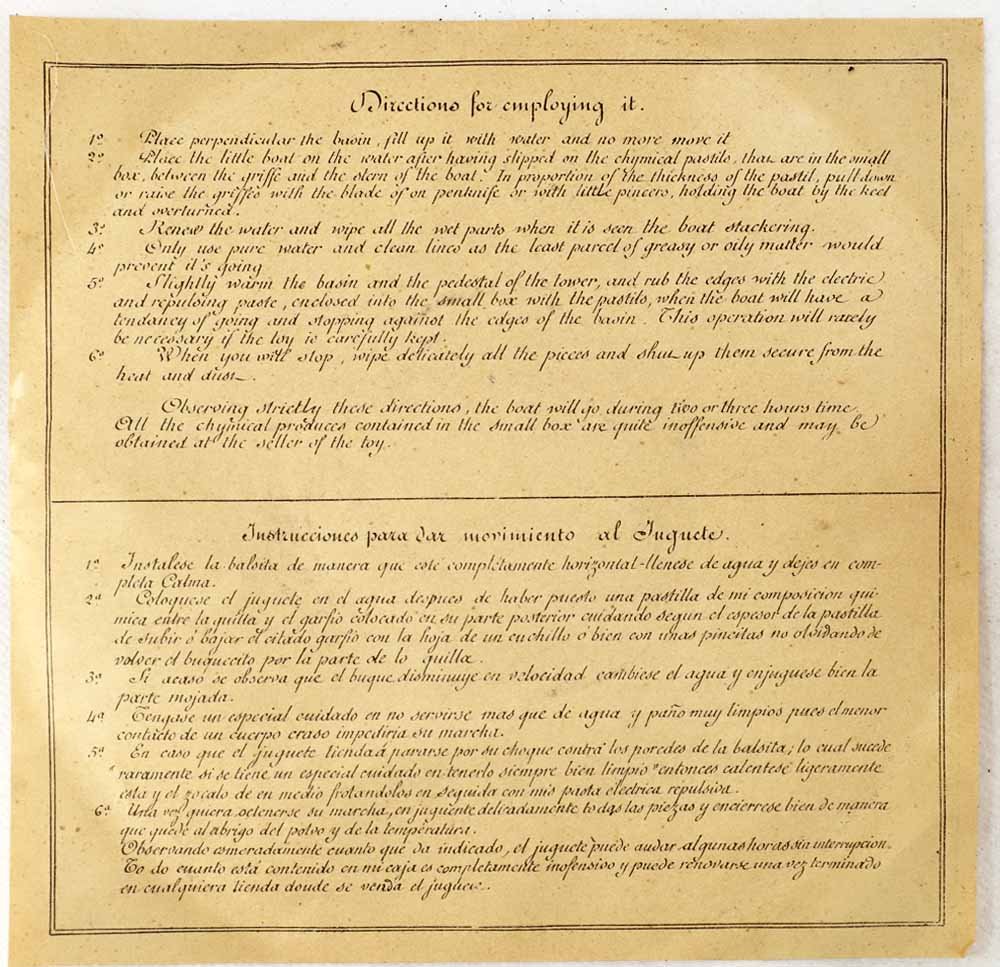 Directions for employing it.
1º Place perpendicular the basin, fill up it with water and no more move it
2º Place the little boat on the water after having slipped on the chymical pastils, that are in the small
box, between the griffe and the stern of the boat. In proportion of the thickness of the pastil, pull down
or raise the griffes with the blade of on penknife or with little pincers, holding the boat by the keel
and overturned.
3º Renew the water and wipe all the wet parts when it is seen the boat stackering.
4º Only use pure water and clean lines as the least parcel of greasy or oily matter would
prevent it's going
5º Slightly warm the basin and the pedestal of the tower, and rub the edges with the electric
and repulsing paste, enclosed into the small box with the pastils, when the boat will have a
tendancy of going and stopping against the edges of the basin. This operation will rately
be necessary if the toy is carefully kept.
6º When you with stop, wipe delicately all the pieces and shut up them secure from the
heat and dust.
Observing strictly these directions, the boat will go during two or three hours time.
All the chymical produces contained in the small box are quite inoffensive and may be
obtained at the seller of the toy.
Instrucciones para dar movimiento al Juguete.
1ª Instalese la balsita de manera que esté completamente horizontal-llenese de agua y dejes en com-
pleta Calma.
2ª Coloquese el juguete en el agua despues de haber puesto una pastilla de mi composicion qui-
mica entre la quilla y el garfio colocado en su parte posterior cuidando segun el espesor de la pastilla
de subir ó bajar el citado garfio con la hoja de un cuchillo ó bien con unas pincitas no olvidando de
volver el buquecito por la parte de lo quilla.
3ª Si acaso se observa que el buque disminuye en velocidad cambiese el agua y enjuguese bien la
parte mojada.
4ª Tengase un especial cuidado en no servirse mas que de agua y paño muy limpios pues el menor
contacto de un cuerpo craso impediria su marcha.
5ª En caso que el juguete tienda á pararse por su choque contrá los poredes de la balsita; lo cual sucede
"raramente si se tiene un especial cuidado en tenerlo siempre bien limpio" entonces calentese ligeramente
esta y el zocalo de en medio frotandolos en seguida con mis pasta electrica repulsiva.
6ª Una vez quiera detenerse su marcha, en juguente delicadamente to das las piezas y encierrese bien de manera
que quede al abrigo del polvo y de la temperatura.
Observando esmeradamente cuanto que da indicado, el juguete puede audar algunas horas sin interrupcion.
To do cuanto está contenido en mi caja es completamente inofensivo y puede renovarse una vez terminado
en cualquiera tienda donde se venda el juguete.